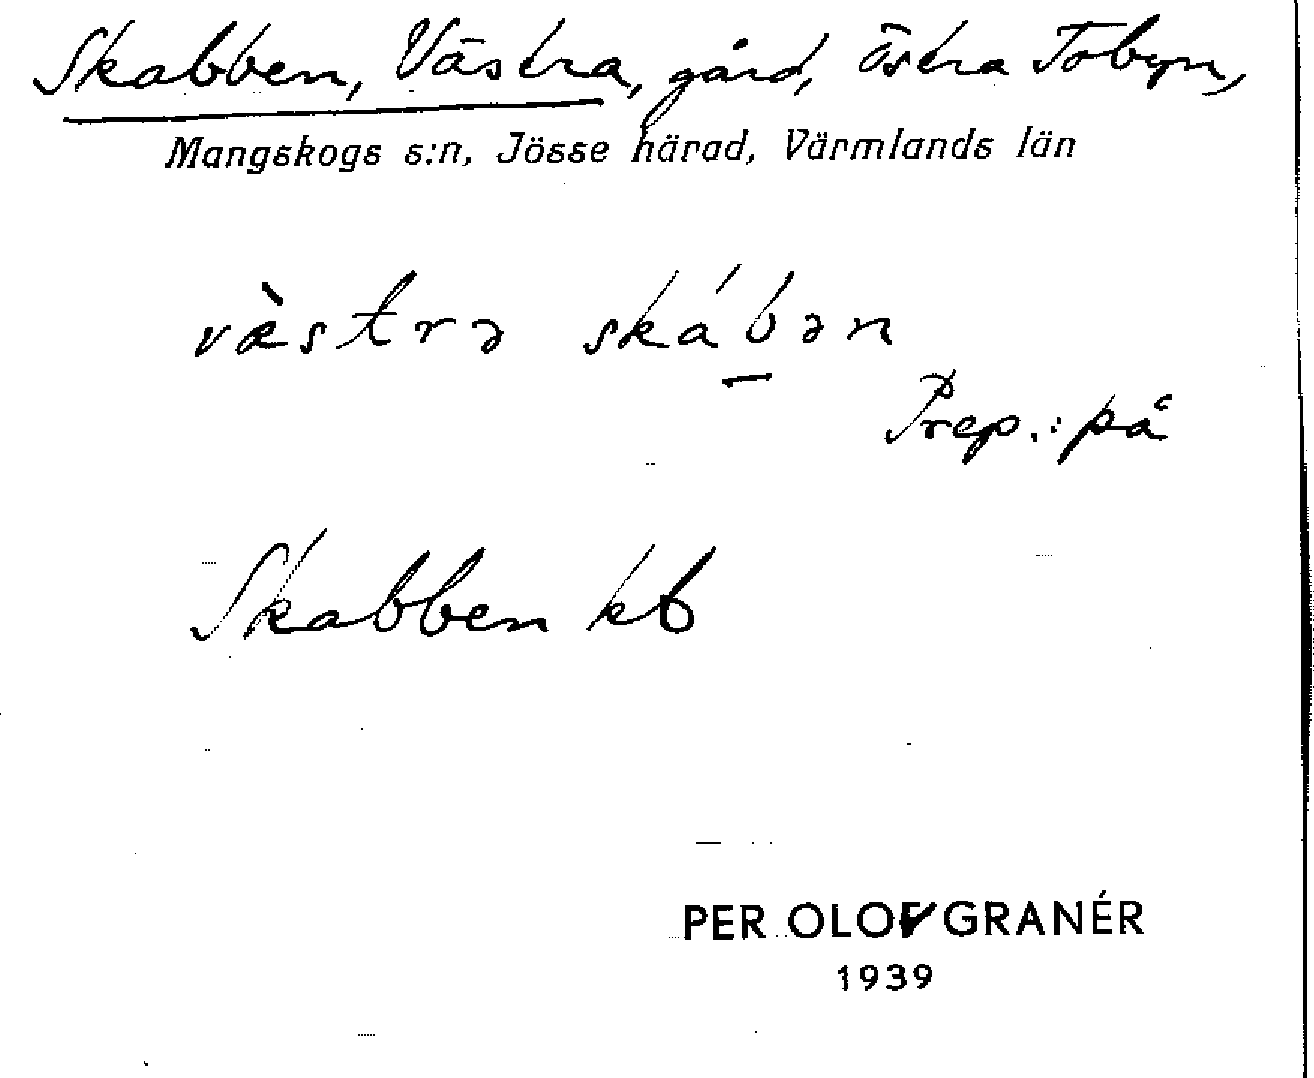 Skabben, Västra, gård, östra Tobyn,
Mangskogs s:n, Jösse härad, Värmlands län
væ̀strə ska´b̲ən
Prep.: på
Skabben kb
PER OLOF GRANÉR
1939